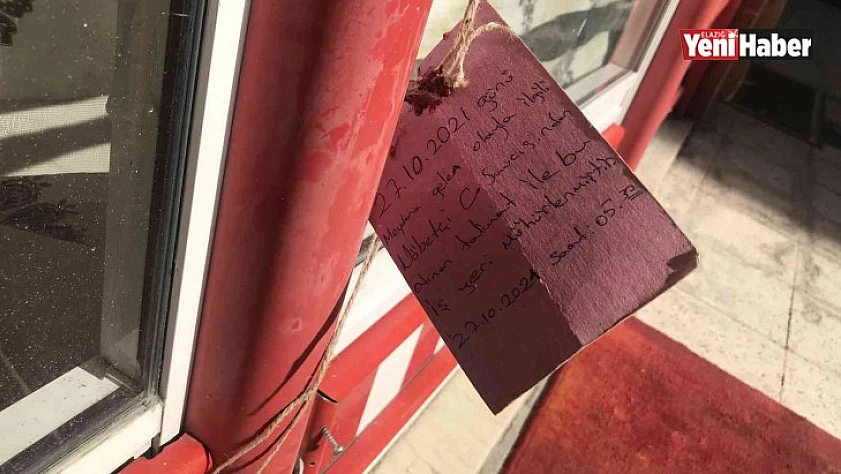 ELAZIĞ
Yeni Haber
27.10.2021 günü
Meydana gelen olayla ilgili
Nöbetçi C Savcısından
alınan talimat ile bu
İş yeri mühürlenmiştir
27.10.2021 Saat: 05.